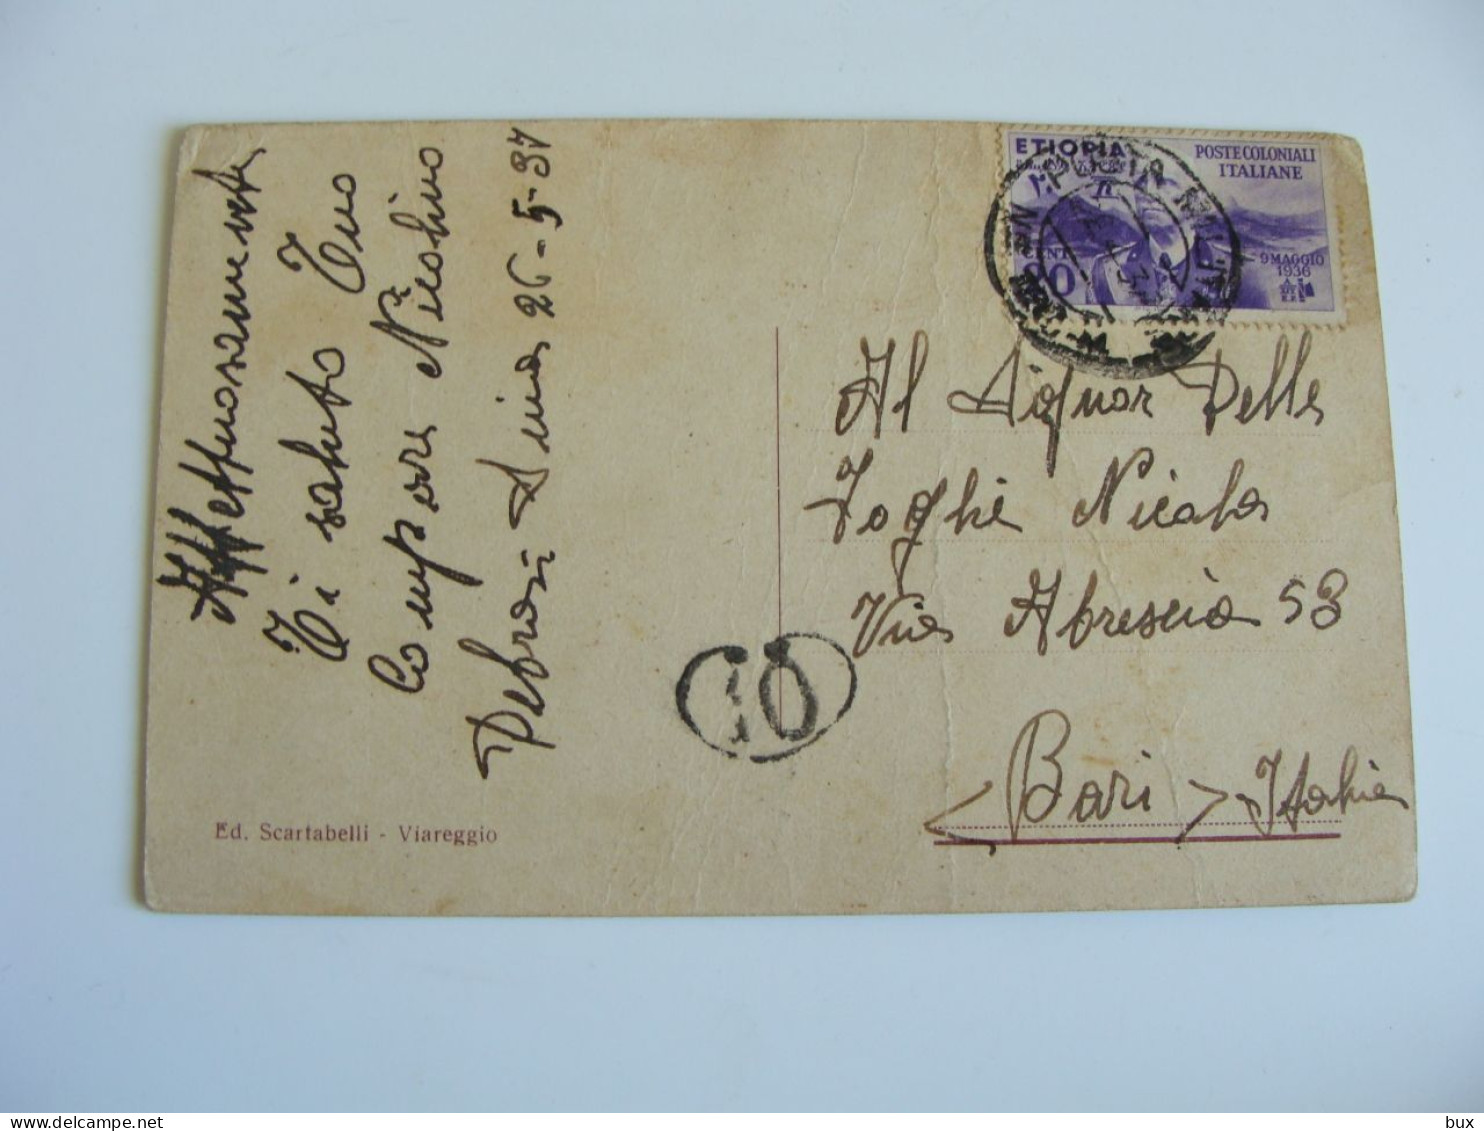 Affettuosamente
Ti saluto Tuo
Compare Nicolino
Debrasi Sina 26-5-37
Ed. Scartabelli - Viareggio
ETIOPIA
POSTE COLONIALI
ITALIANE
CENT
20
9 MAGGIO
1936
10
Al Signor Delle
Foghie Nicola
Via Abrescia 53
Bari Italia
delcampe.net
bux